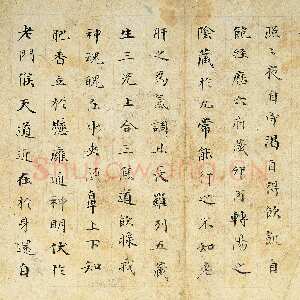 照〻夜自守渴自得飲飢自
飽經歷六府藏卯酉轉陽之
陰藏於九常能行之不知老
肝之為氣調且長羅列五藏
生三光上合三焦道飲漿我
神魂魄在中央隨鼻上下知
肥香立於懸雍通神明伏於
老門候天道近在於身還自